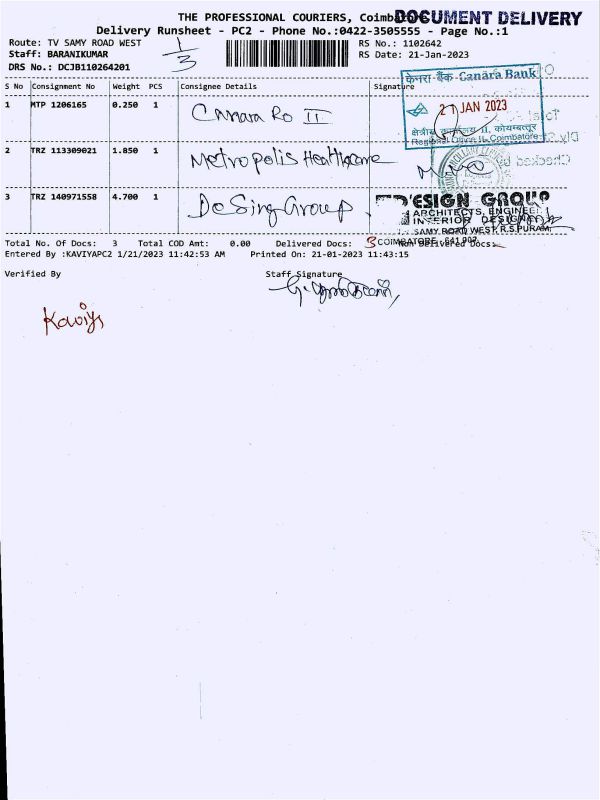 THE PROFESSIONAL COURIERS, Coimbatore
DOCUMENT DELIVERY
Delivery Runsheet - PC2 - Phone No.:0422-3505555 - Page No.:1
Route: TV SAMY ROAD WEST
RS No.: 1102642
Staff: BARANIKUMAR
1/3
RS Date: 21-Jan-2023
DRS No.: DCJB110264201
S No Consignment No Weight PCS Consignee Details Signature
केनरा बैंक Canara Bank
21 JAN 2023
क्षेत्रीय कार्यालय II, कोयम्बत्तूर
Regional Office II, Coimbatore
1 MTP 1206165 0.250 1 Canara Ro II
2 TRZ 113309021 1.850 1 Metropolis Healthcare
3 TRZ 140971558 4.700 1 DeSing Group
DESIGN GROUP
ARCHITECTS, ENGINEER
INTERIOR DESIGNER
SAMY ROAD WEST, R.S.PURAM,
COIMBATORE - 641 002
Total No. Of Docs: 3 Total COD Amt: 0.00 Delivered Docs: 3 Non Delivered Docs:
Entered By :KAVIYAPC2 1/21/2023 11:42:53 AM Printed On: 21-01-2023 11:43:15
Verified By Staff Signature
Kaviya